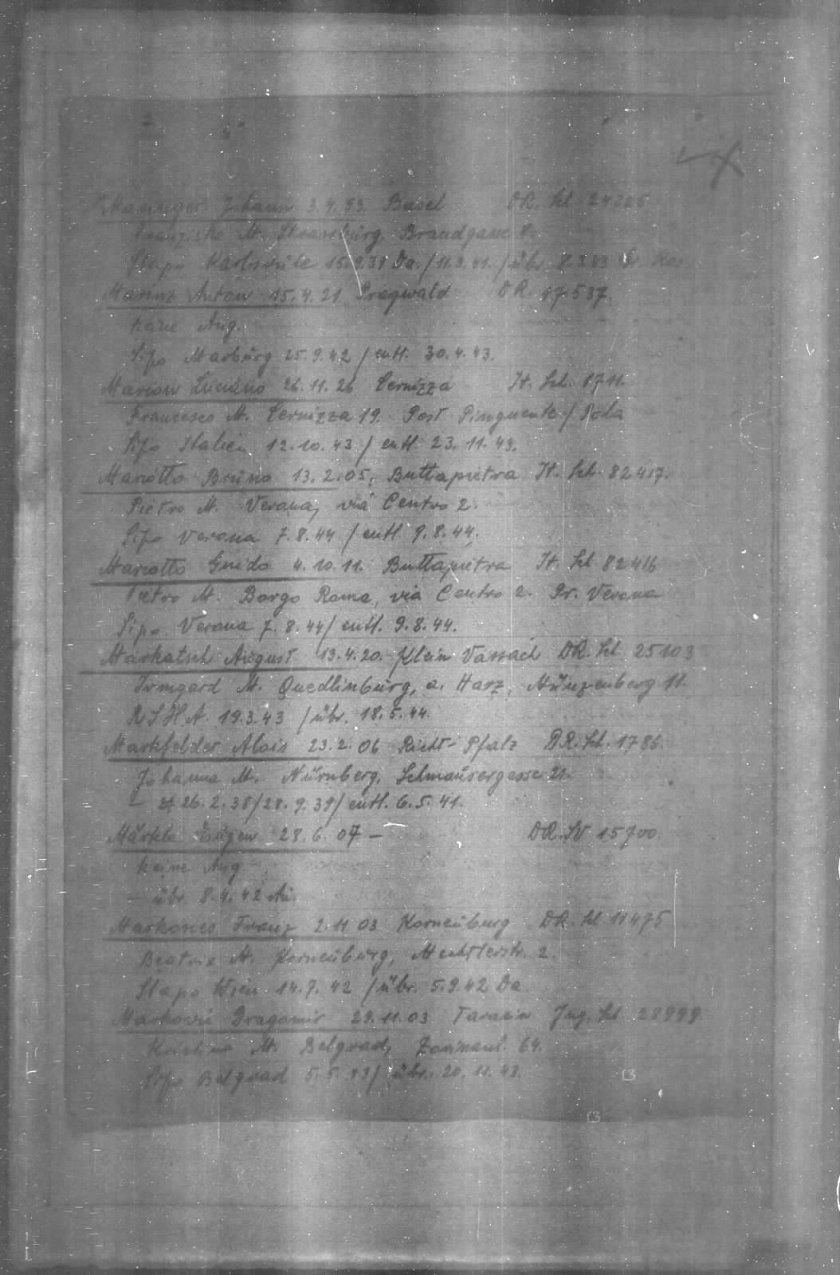 Johann 3.4.93. Basel DR. Sch 24225
M. Strassburg, Brandgasse
Stapo Karlsruhe 15.9.39 Da./11.3.41./übr.
Marinz Anton 15.4.21 Pragwald DR. 17.537.
keine Ang.
Sipo Marburg 25.9.42 / entl. 30.4.43.
Marion Luciano 26.11.26 Cernizza It. Sch. 1711.
Francesco M. Cernizza 19. Post Pinguente / Pola
Sipo Italien 12.10.43 / entl. 23.11.43.
Mariotto Bruno 13.2.05, Buttapietra It. Sch. 82417.
Pietro M. Verona, via Centro 2.
Sipo Verona 7.8.44 / entl. 9.8.44.
Mariotto Guido 4.10.11. Buttapietra It. Sch 82416
Pietro M. Borgo Roma, via Centro 2. Pr. Verona
Sipo. Verona 7.8.44 / entl. 9.8.44.
Markatsch August 13.4.20. Klein DR. Sch 25103
Irmgard M. Quedlinburg, a. Harz, Münzenberg 11.
RSHA. 19.3.43 / übr. 18.5.44.
Markfelder Alois 23.2.06 Pfalz DR. Sch. 1786.
Johanna M. Nürnberg, Schmausergasse 21.
- 26.2.38/28.9.39/ entl. 6.5.41.
Märkle Eugen 28.6.07 - DR. SV 15700.
keine Ang
- übr. 8.4.42
Franz 2.11.03 Korneuburg DR. Sch 11475
M. Korneuburg, 2.
Stapo Wien 14.7.42 / übr. 5.9.42 Da
Markovic Dragomir 29.11.03 Jug. Sch 28999
Kristina M. Belgrad, 64.
Sipo Belgrad 5.5.43/ übr. 20.11.43.